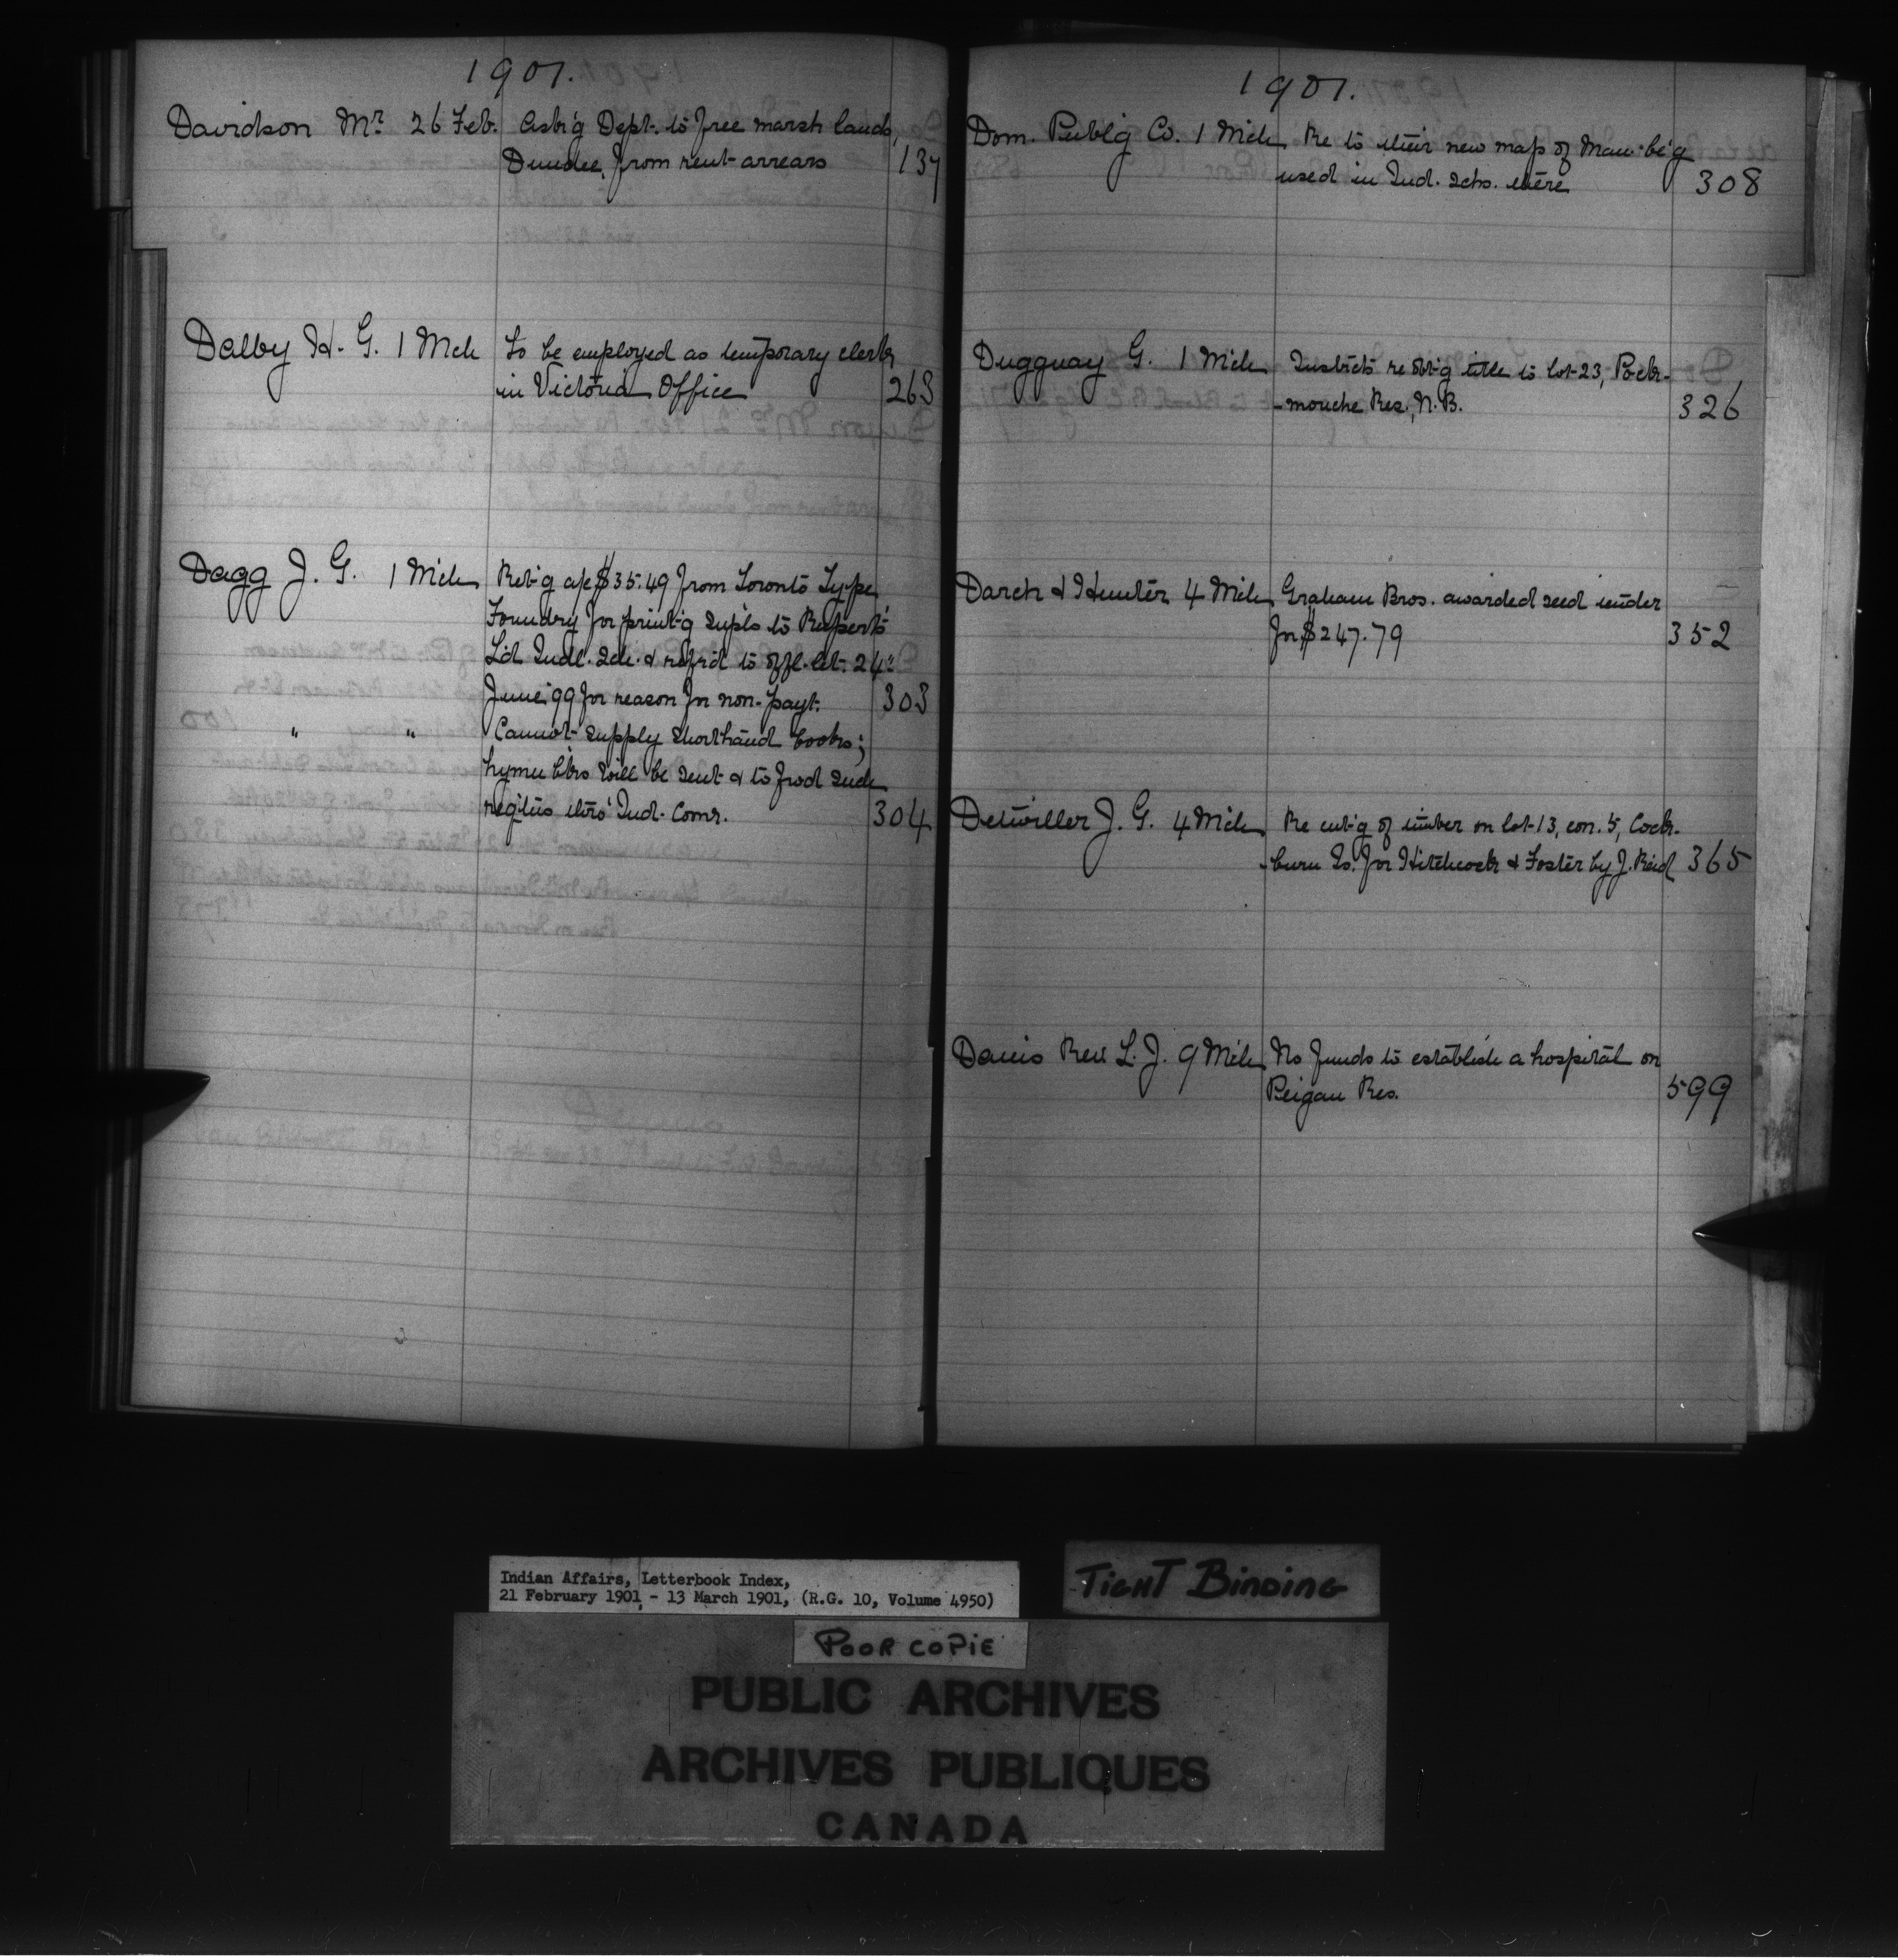 1901.
Davidson Mr. 26 Feb. Ask'g Dept. to free marsh lands,
Dundee, from rent arrears 137
Dalby H. G. 1 Mch To be employed as temporary clerk
in Victoria Office 263
Dagg J. G. 1 Mch Ret'g a/c $35.49 from Toronto Type
Foundry for print'g supls to Rupert's
L'd Indl. Sch. & ref'd to offl. let. 24"
June '99 for reason for non-payt. 303
" " Cannot supply shorthand books;
hymn bks will be sent & to fwd such
req'tns thro' Ind. Comr. 304
1901.
Dom. Publ'g Co. 1 Mch Re to their new map of Man. be'g
used in Ind. schs. there 308
Dugguay G. 1 Mch Instrcts re obt'g title to lot 23, Pock-
-mouche Res., N.B. 326
Darch & Hunter 4 Mch Graham Bros. awarded seed tender
for $247.79 352
Detwiller J. G. 4 Mch Re cut'g of timber on lot 13, con. 5, Cock-
-burn Is. for Hitchcock & Foster by J. Reid 365
Dauis Rev. L. J. 9 Mch No funds to establish a hospital on
Peigan Res. 599
Indian Affairs, Letterbook Index,
21 February 1901 - 13 March 1901, (R.G. 10, Volume 4950)
TIGHT BINDING
POOR COPIE
PUBLIC ARCHIVES
ARCHIVES PUBLIQUES
CANADA